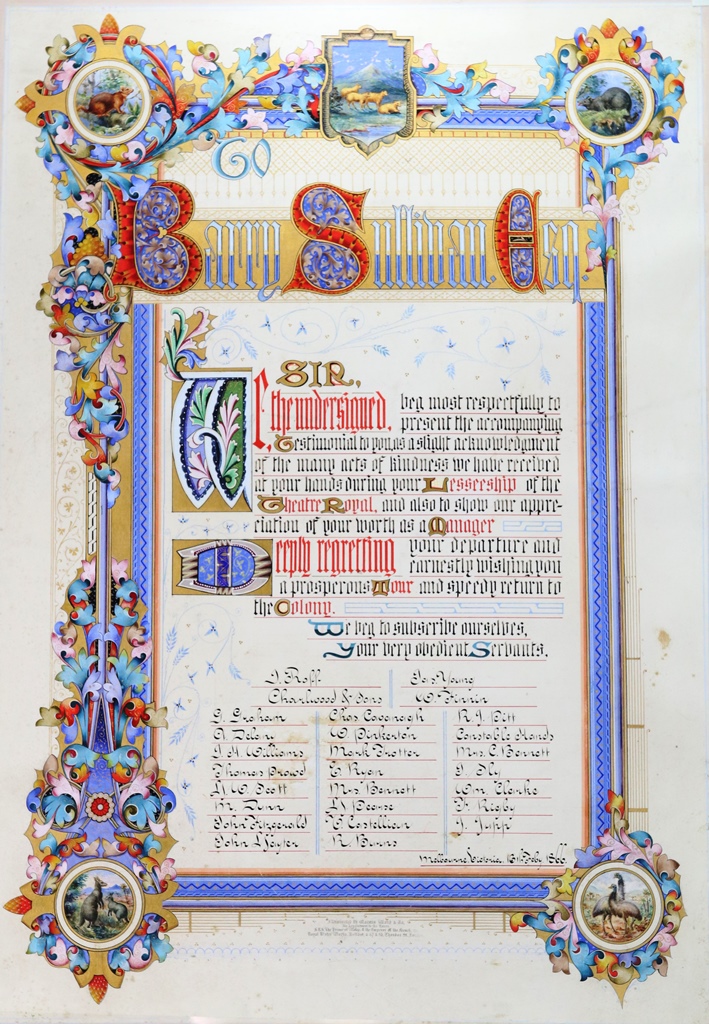 To
Barry Sullivan. Esq.
SIR,
We, the undersigned, beg most respectfully to
present the accompanying
Testimonial to you, as a slight acknowledgment
of the many acts of kindness we have received
at your hands during your Lesseeship of the
Theatre Royal, and also to show our appre-
ciation of your worth as a Manager
Deeply regretting your departure and
earnestly wishing you
a prosperous Tour and speedy return to
the Colony.
We beg to subscribe ourselves,
Your very obedient Servants,
Jas Young
Charlwood & Sons
G. Graham Chas Cavenagh R. J. Pitt
A. Delany W. Pinkerton Constable Hands
J. H. Williams Mark Trotter Mrs. C. Bennett
Thomas E. Ryan
H. W. Scott Mrs. Bennett Wm. Clarke
M. Dunn H. Pearse F. Rigby
John Fitzgerald
John R. Burns
Melbourne, Victoria, 16th Feby. 1866.